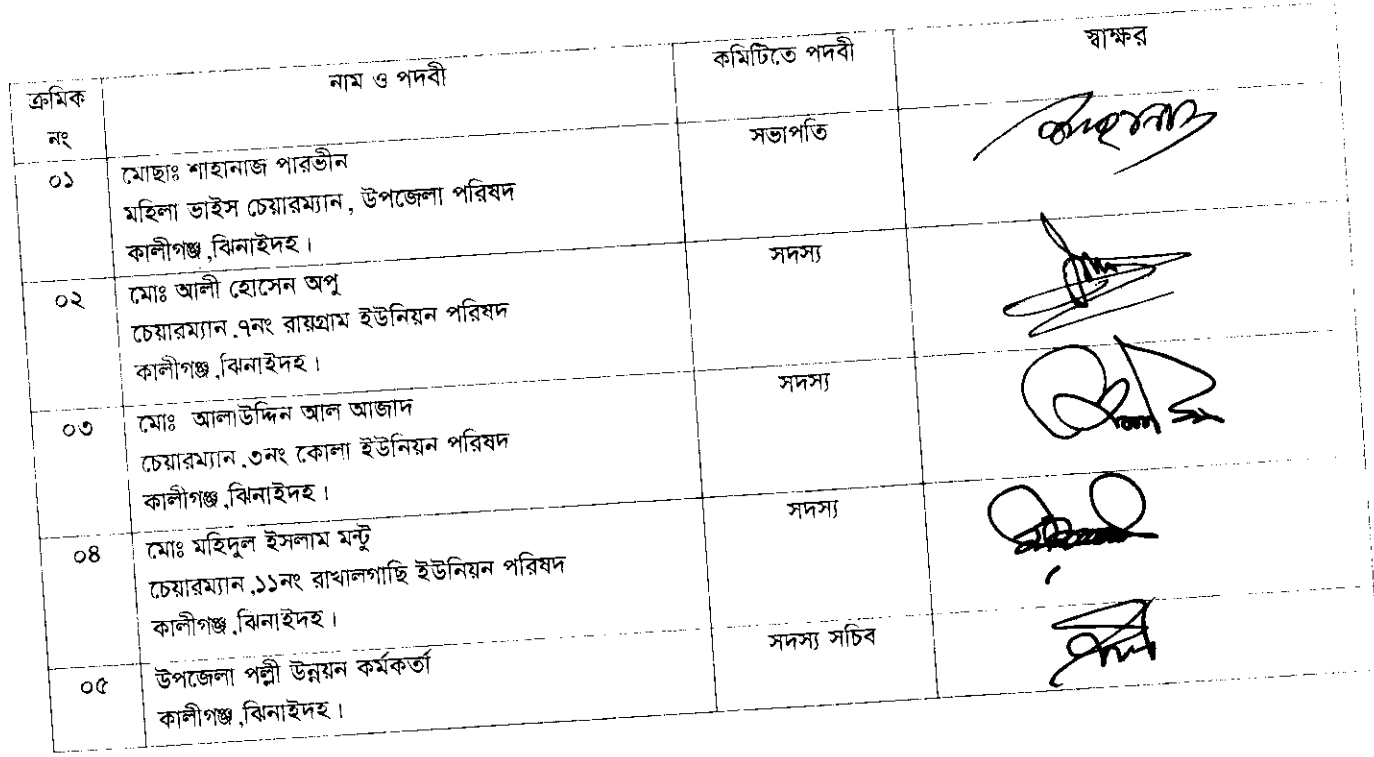 ক্রমিক নং নাম ও পদবী কমিটিতে পদবী স্বাক্ষর
০১ মোছাঃ শাহানাজ পারভীন সভাপতি
মহিলা ভাইস চেয়ারম্যান, উপজেলা পরিষদ
কালীগঞ্জ,ঝিনাইদহ।
০২ মোঃ আলী হোসেন অপু সদস্য
চেয়ারম্যান,৭নং রায়গ্রাম ইউনিয়ন পরিষদ
কালীগঞ্জ,ঝিনাইদহ।
০৩ মোঃ আলাউদ্দিন আল আজাদ সদস্য
চেয়ারম্যান,৩নং কোলা ইউনিয়ন পরিষদ
কালীগঞ্জ,ঝিনাইদহ।
০৪ মোঃ মহিদুল ইসলাম মন্টু সদস্য
চেয়ারম্যান,১১নং রাখালগাছি ইউনিয়ন পরিষদ
কালীগঞ্জ,ঝিনাইদহ।
০৫ উপজেলা পল্লী উন্নয়ন কর্মকর্তা সদস্য সচিব
কালীগঞ্জ,ঝিনাইদহ।